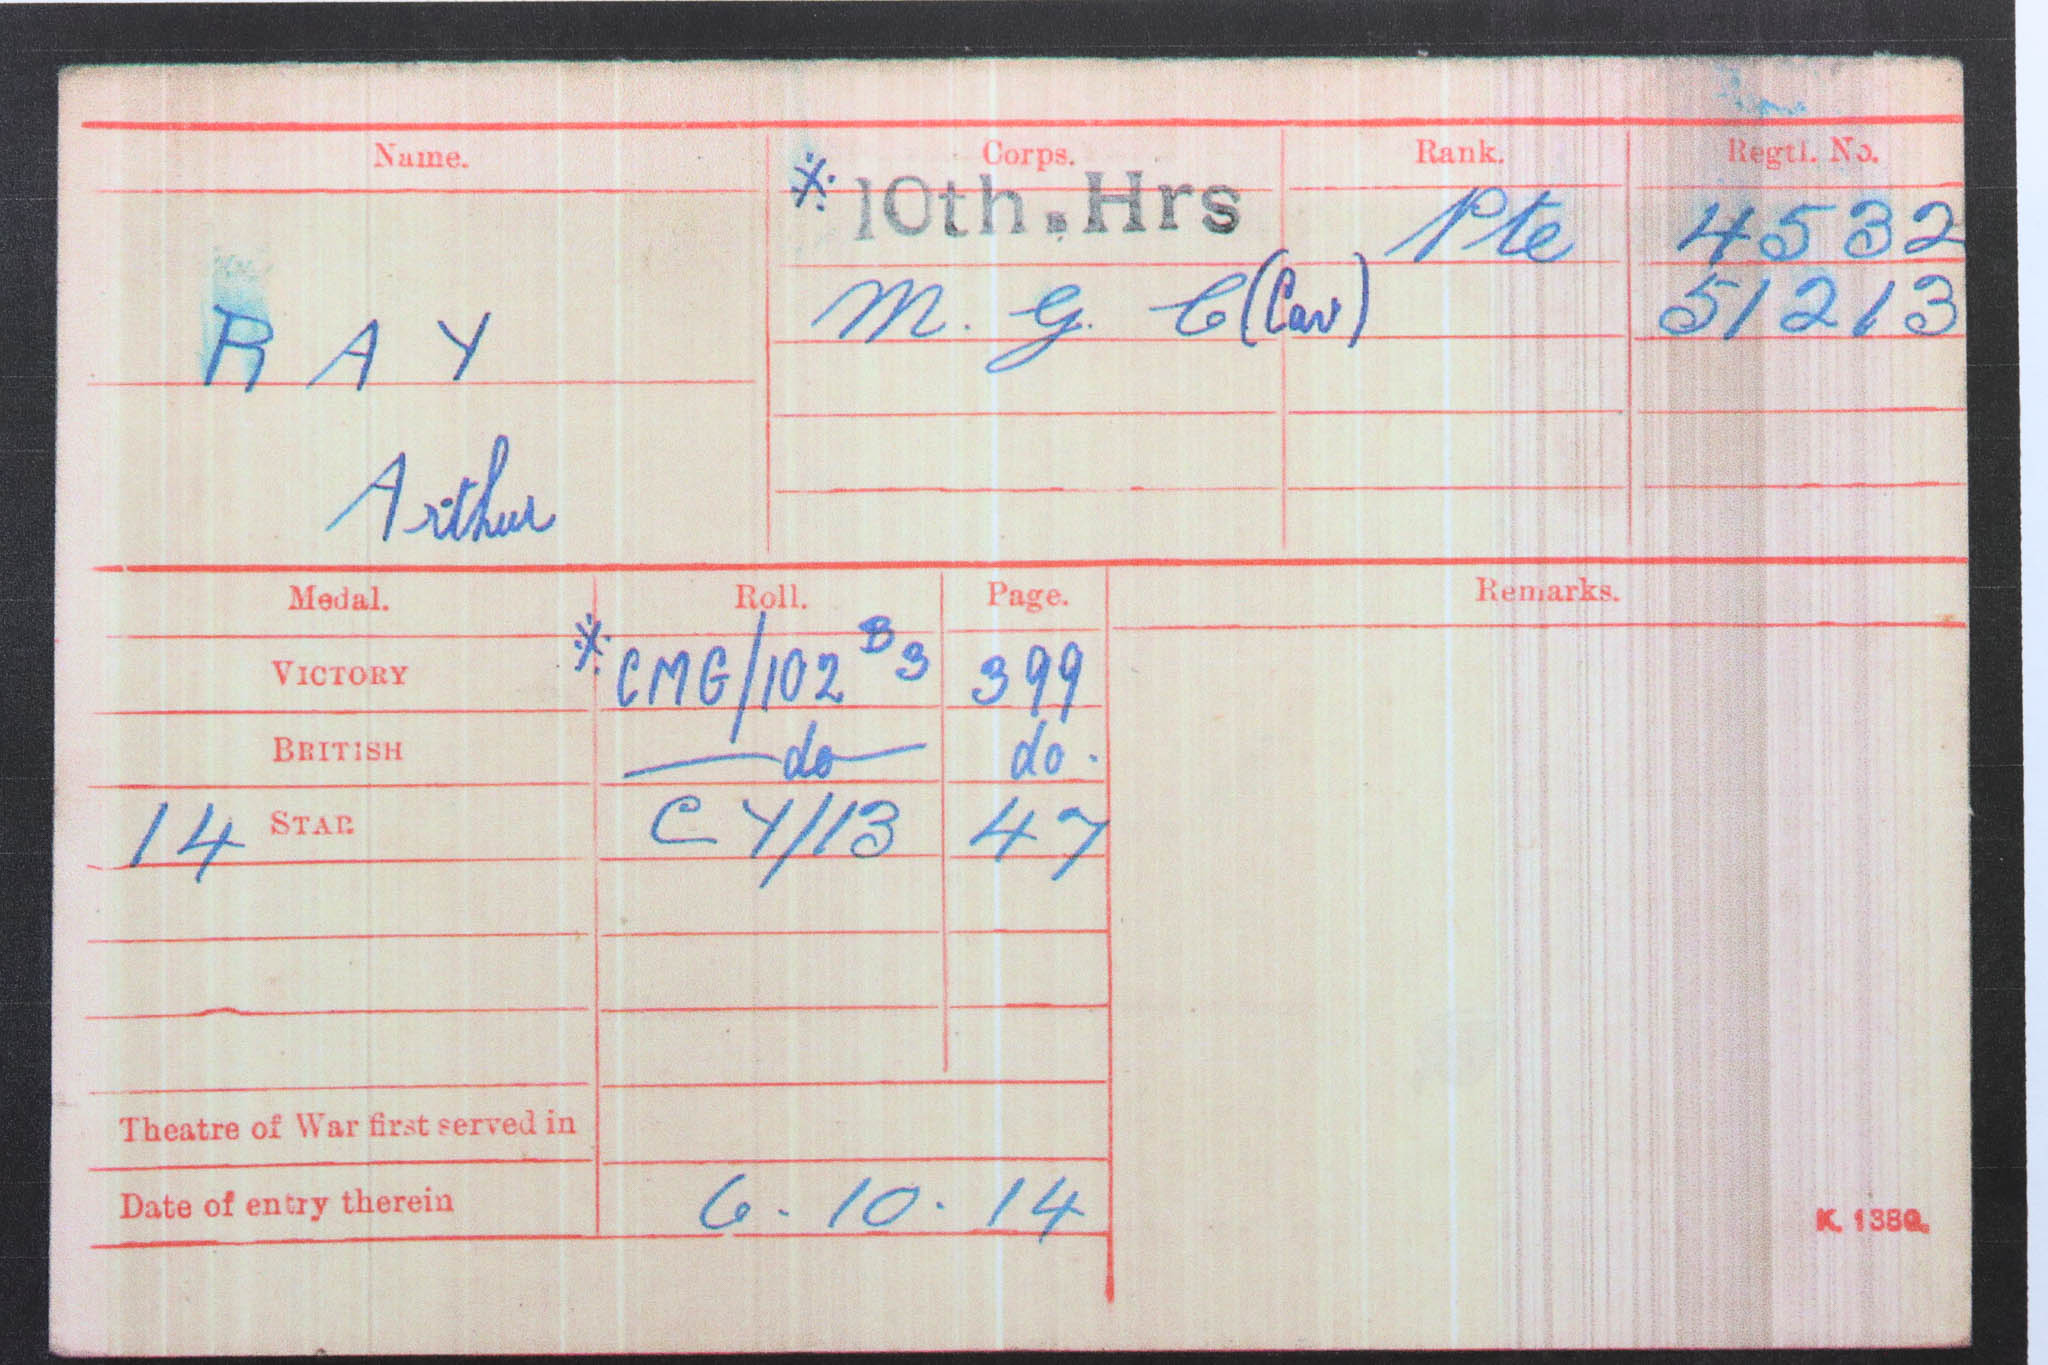 Name. Corps. Rank. Regtl. No.
※ 10th.Hrs Pte 4532
M. G. C (Cav) 51213
RAY
Arthur
Medal. Roll. Page. Remarks.
VICTORY ※ CMG/102 B3 399
BRITISH do do.
14 STAR CY/13 47
Theatre of War first served in
Date of entry therein 6.10.14
K. 1380.